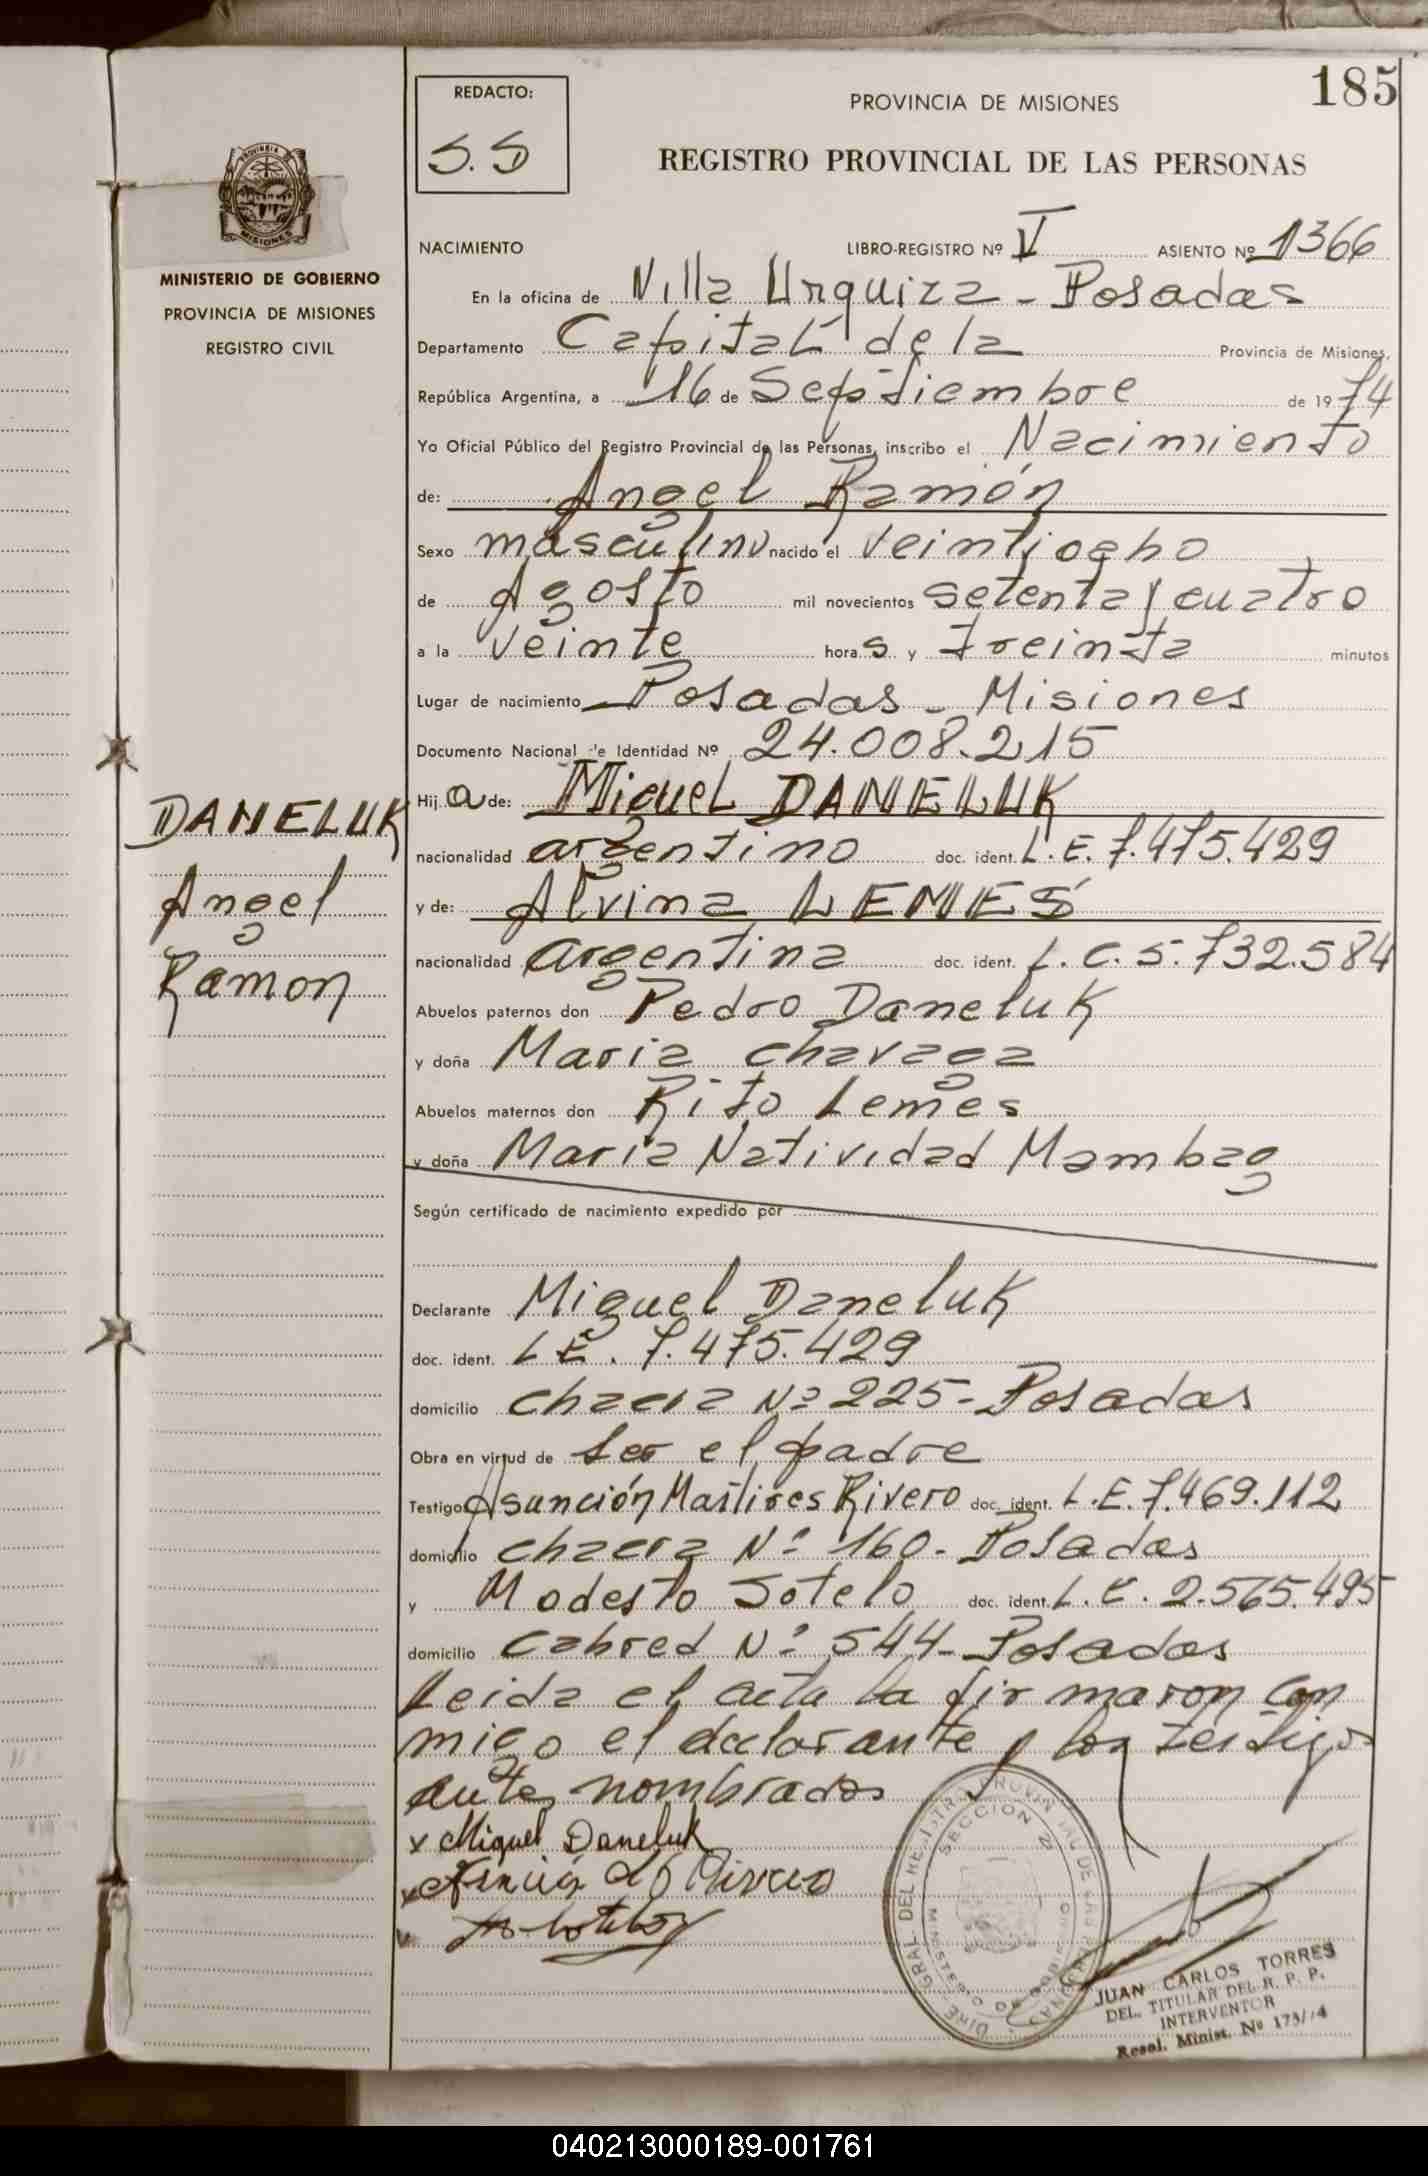 185
REDACTO:
S.S
PROVINCIA DE MISIONES
REGISTRO PROVINCIAL DE LAS PERSONAS
PROVINCIA DE
MISIONES
MINISTERIO DE GOBIERNO
PROVINCIA DE MISIONES
REGISTRO CIVIL
NACIMIENTO LIBRO-REGISTRO Nº V ASIENTO Nº 1366
En la oficina de Villa Urquiza - Posadas
Departamento Capital de la Provincia de Misiones,
República Argentina, a 16 de Septiembre de 1974
Yo Oficial Público del Registro Provincial de las Personas, inscribo el Nacimiento
de: Angel Ramón
Sexo masculino nacido el veintiocho
de Agosto mil novecientos setenta y cuatro
a la veinte horas y treinta minutos
Lugar de nacimiento Posadas - Misiones
Documento Nacional de Identidad Nº 24.008.215
Hij o de: Miguel DANELUK
nacionalidad argentino doc. ident. L.E. 7.475.429
y de: Alvina LEMES
nacionalidad argentina doc. ident. L.C. 5.732.584
DANELUK
Angel
Ramon
Abuelos paternos don Pedro Daneluk
y doña Maria Chavaga
Abuelos maternos don Rito Lemes
y doña Maria Natividad Mambag
Según certificado de nacimiento expedido por
Declarante Miguel Daneluk
doc. ident. L.E. 7.475.429
domicilio chacra Nº 225 - Posadas
Obra en virtud de ser el padre
Testigo Asunción Martires Rivero doc. ident. L.E. 7.469.112
domicilio chacra Nº 160 - Posadas
y Modesto Sotelo doc. ident. L.E. 2.565.495
domicilio Cabred Nº 544 - Posadas
Leida el acta la firmaron con
migo el declarante y los testigos
antes nombrados
x Miguel Daneluk
SECCION 2
JUAN CARLOS TORRES
DEL. TITULAR DEL R. P. P.
INTERVENTOR
Resol. Minist. Nº 173/74
040213000189-001761